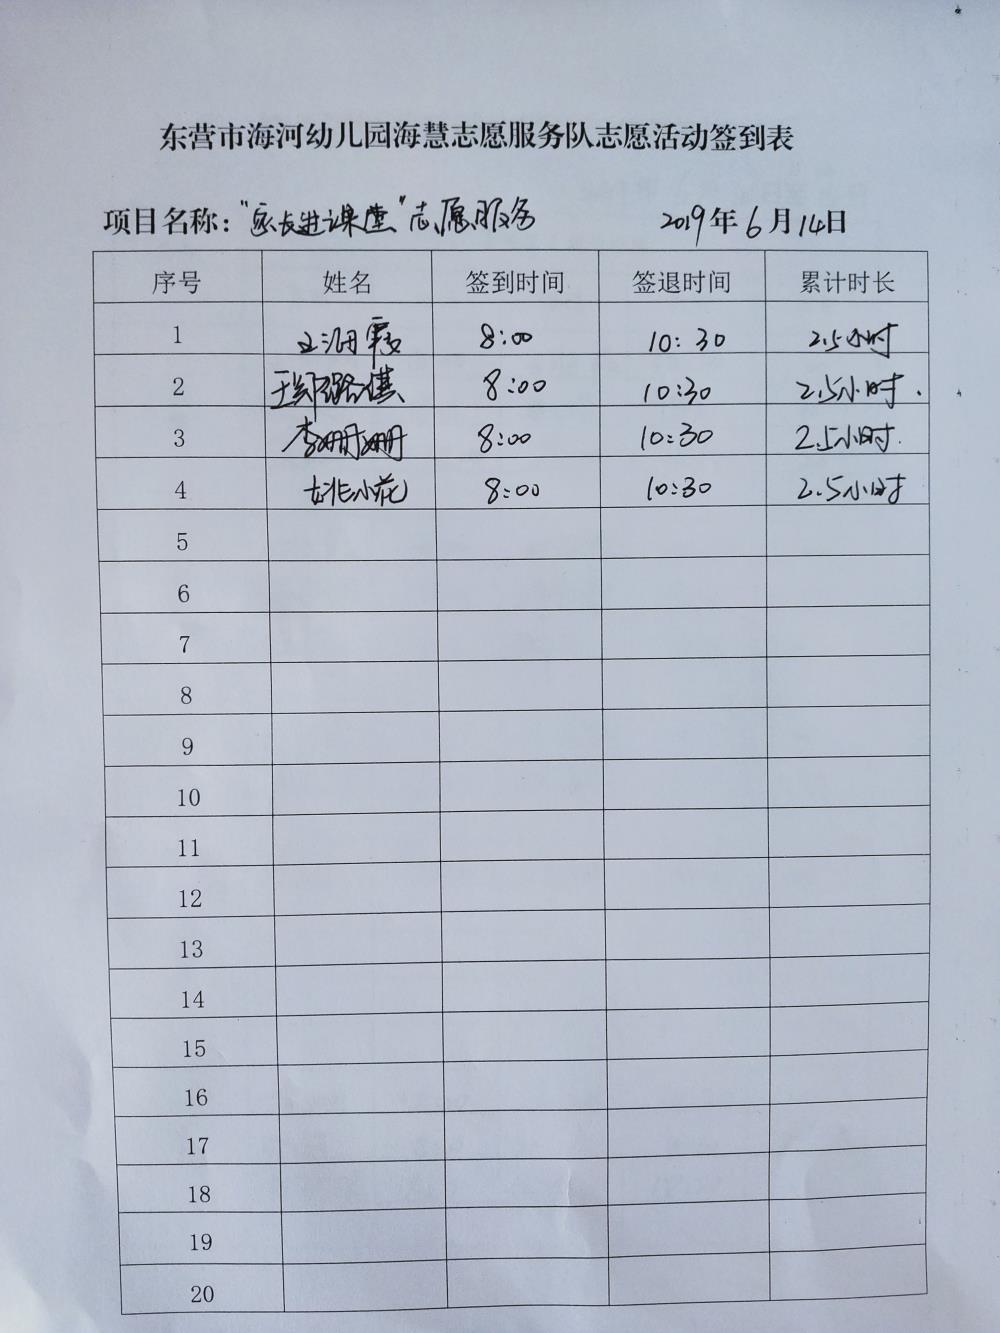 东营市海河幼儿园海慧志愿服务队志愿活动签到表
项目名称："家长进课堂"志愿服务 2019年6月14日
序号 姓名 签到时间 签退时间 累计时长
1 8:00 10:30 2.5小时
2 8:00 10:30 2.5小时.
3 李珊珊 8:00 10:30 2.5小时.
4 姚小花 8:00 10:30 2.5小时
5
6
7
8
9
10
11
12
13
14
15
16
17
18
19
20